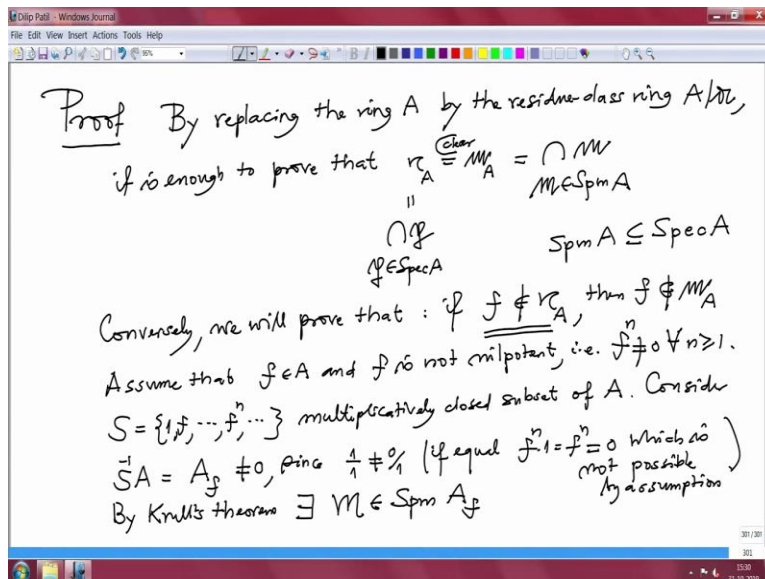 Dilip Patil - Windows Journal
File Edit View Insert Actions Tools Help
95%
Proof By replacing the ring A by the residue class ring A/𝔞,
it is enough to prove that 𝔫_A (clear) ⊆ 𝔪_A = ∩ 𝔪
𝔪∈Spm A
||
∩ 𝔭
𝔭∈Spec A
Spm A ⊆ Spec A
Conversely, we will prove that : if f ∉ 𝔫_A, then f ∉ 𝔪_A
Assume that f∈A and f is not nilpotent, i.e. f^n ≠ 0 ∀ n≥1.
S = {1, f, ..., f^n, ...} multiplicatively closed subset of A. Consider
S^-1 A = A_f ≠ 0, since 1/1 ≠ 0/1 (if equal f^n·1 = f^n = 0 which is
not possible
by assumption)
By Krull's theorem ∃ 𝔐 ∈ Spm A_f
301 / 301
301
15:30